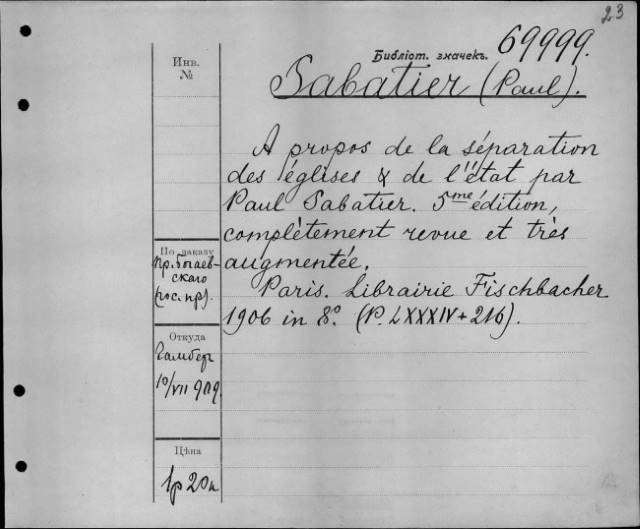 23
Библіот. значекъ. 69999.
Sabatier (Paul).
Инв.
№
A propos de la séparation
des églises & de l'état par
Paul Sabatier. 5me édition,
complètement revue et très
augmentée.
Paris. Librairie Fischbacher
1906 in 8º. (P. LXXXIV + 216).
По заказу
пр. Богаев-
скаго
(гос. пр).
Откуда
Гамбер
10/VII 909.
Цѣна
1р 20к